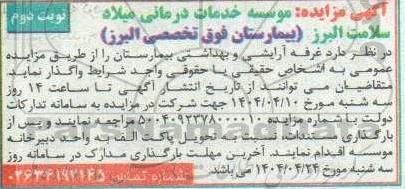 نوبت دوم
آگهی مزایده: موسسه خدمات درمانی میلاد
سلامت البرز (بیمارستان فوق تخصصی البرز)
در نظر دارد غرفه آرایشی و بهداشتی بیمارستان را از طریق مزایده
عمومی به اشخاص حقیقی یا حقوقی واجد شرایط واگذار نماید
متقاضیان می توانند از تاریخ انتشار آگهی تا ساعت ۱۴ روز
سه شنبه مورخ ۱۴۰۴/۰۴/۱۰ جهت شرکت در مزایده به سامانه تدارکات
دولت با شماره مزایده ۵۰۰۴۰۹۲۳۷۸۰۰۰۰۱۰ مراجعه نمایند و پس از
بارگذاری مستندات، نسبت به تحویل پاکت الف به واحد دبیرخانه
موسسه اقدام نمایند. آخرین مهلت بارگذاری مدارک در سامانه روز
سه شنبه مورخ ۱۴۰۴/۰۴/۲۴ می باشد
شماره تماس: ۰۲۶۳۶۱۹۲۱۴۵